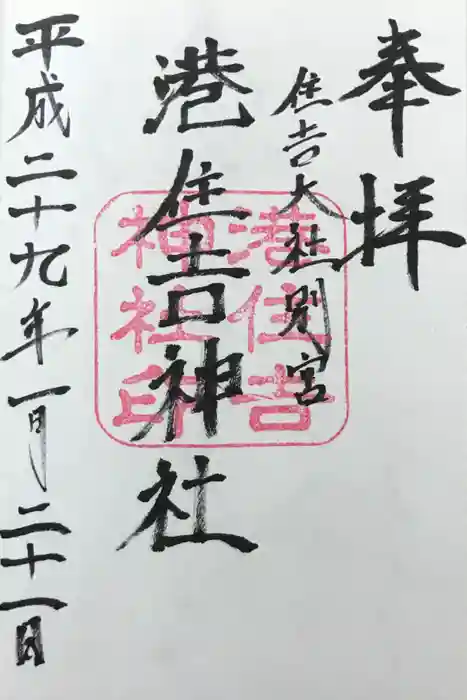 奉拝
住吉大社別宮
港住吉神社
港住吉
神社印
平成二十九年一月二十一日